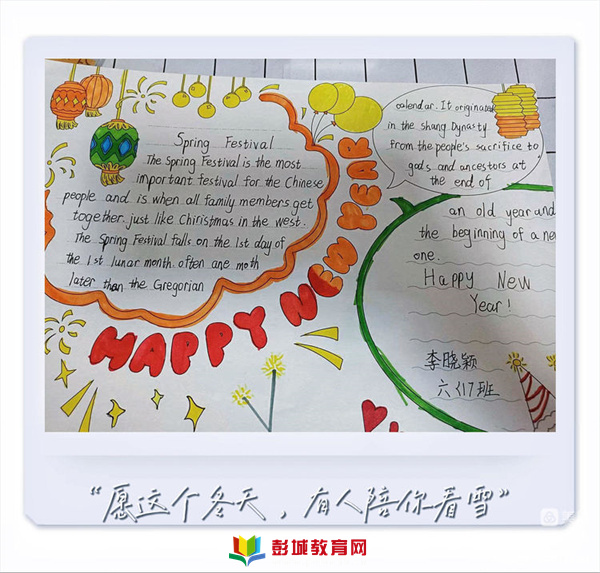 Spring Festival
The Spring Festival is the most
important festival for the Chinese
people and is when all family members get
together. just like Chiristmas in the west.
The Spring Festival falls on the 1st day of
the 1st lunar month. often one moth
later than the Gregorian
calendar. It originated
in the shang Dynasty
from the people's sacrifice to
gods and ancestors at
the end of
an old year and
the beginning of a new
one.
Happy New
Year!
李晓颖
六〈17班
HAPPY NEW YEAR
“愿这个冬天，有人陪你看雪”
彭城教育网